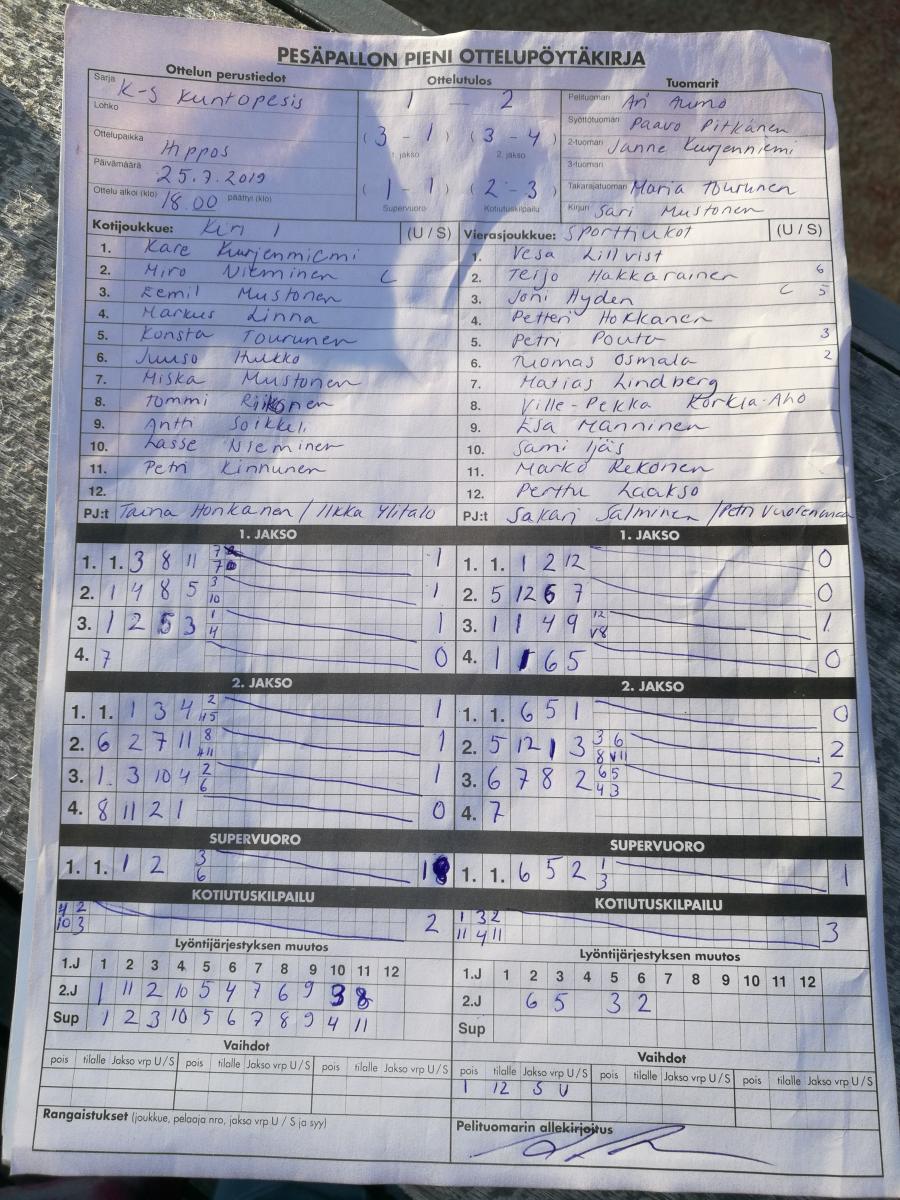 PESÄPALLON PIENI OTTELUPÖYTÄKIRJA
Ottelun perustiedot Ottelutulos Tuomarit
Sarja K-S Kuntopesis 1 - 2 Pelituomari Ari Aumo
Lohko Syöttötuomari Paavo Pitkänen
Ottelupaikka Hippos (3 - 1) (3 - 4) 2-tuomari Janne Kurjenniemi
1. jakso 2. jakso 3-tuomari
Päivämäärä 25.7.2019 (1 - 1) (2 - 3) Takarajatuomari Maria Tourunen
Ottelu alkoi (klo) 18.00 päättyi (klo) Supervuoro Kotiutuskilpailu Kirjuri Sari Mustonen
Kotijoukkue: Kiri 1 (U / S) Vierasjoukkue: Sporttijukot (U / S)
1. Kare Kurjenniemi 1. Vesa Lillvist
2. Miro Nieminen C 2. Teijo Hakkarainen 6
3. Eemil Mustonen 3. Joni Hyden C 5
4. Markus Linna 4. Petteri Hokkanen
5. Konsta Tourunen 5. Petri Pouta 3
6. Juuso Hukko 6. Tuomas Osmala 2
7. Miska Mustonen 7. Matias Lindberg
8. Tommi Riikonen 8. Ville-Pekka Korkia-Aho
9. Antti Soikkeli 9. Esa Manninen
10. Lasse Nieminen 10. Sami Ijäs
11. Petri Kinnunen 11. Marko Rekonen
12. 12. Perttu Laakso
PJ:t Taina Honkanen / Ilkka Ylitalo PJ:t Sakari Salminen / Petri Vuorenmaa
1. JAKSO 1. JAKSO
1. 1. 3 8 11 7 7 1 1. 1. 1 2 12 0
2. 1 4 8 5 3 10 1 2. 5 12 6 7 0
3. 1 2 5 3 1 4 1 3. 1 1 4 9 12 V8 1
4. 7 0 4. 1 1 6 5 0
2. JAKSO 2. JAKSO
1. 1. 1 3 4 2 1 1. 1. 6 5 1 0
2. 6 2 7 11 8 1 2. 5 12 1 3 3 6 8 V11 2
3. 1. 3 10 4 2 6 1 3. 6 7 8 2 6 5 4 3 2
4. 8 11 2 1 0 4. 7
SUPERVUORO SUPERVUORO
1. 1. 1 2 3 6 1 1. 1. 6 5 2 1 3 1
KOTIUTUSKILPAILU KOTIUTUSKILPAILU
4 2 1 3 2
10 3 2 11 4 11 3
Lyöntijärjestyksen muutos Lyöntijärjestyksen muutos
1.J 1 2 3 4 5 6 7 8 9 10 11 12 1.J 1 2 3 4 5 6 7 8 9 10 11 12
2.J 1 11 2 10 5 4 7 6 9 3 8 2.J 6 5 3 2
Sup 1 2 3 10 5 6 7 8 9 4 11 Sup
Vaihdot Vaihdot
pois tilalle Jakso vrp U / S pois tilalle Jakso vrp U / S pois tilalle Jakso vrp U / S pois tilalle Jakso vrp U / S pois tilalle Jakso vrp U / S pois tilalle Jakso vrp U / S
1 12 S U
Rangaistukset (joukkue, pelaaja nro, jakso vrp U / S ja syy) Pelituomarin allekirjoitus